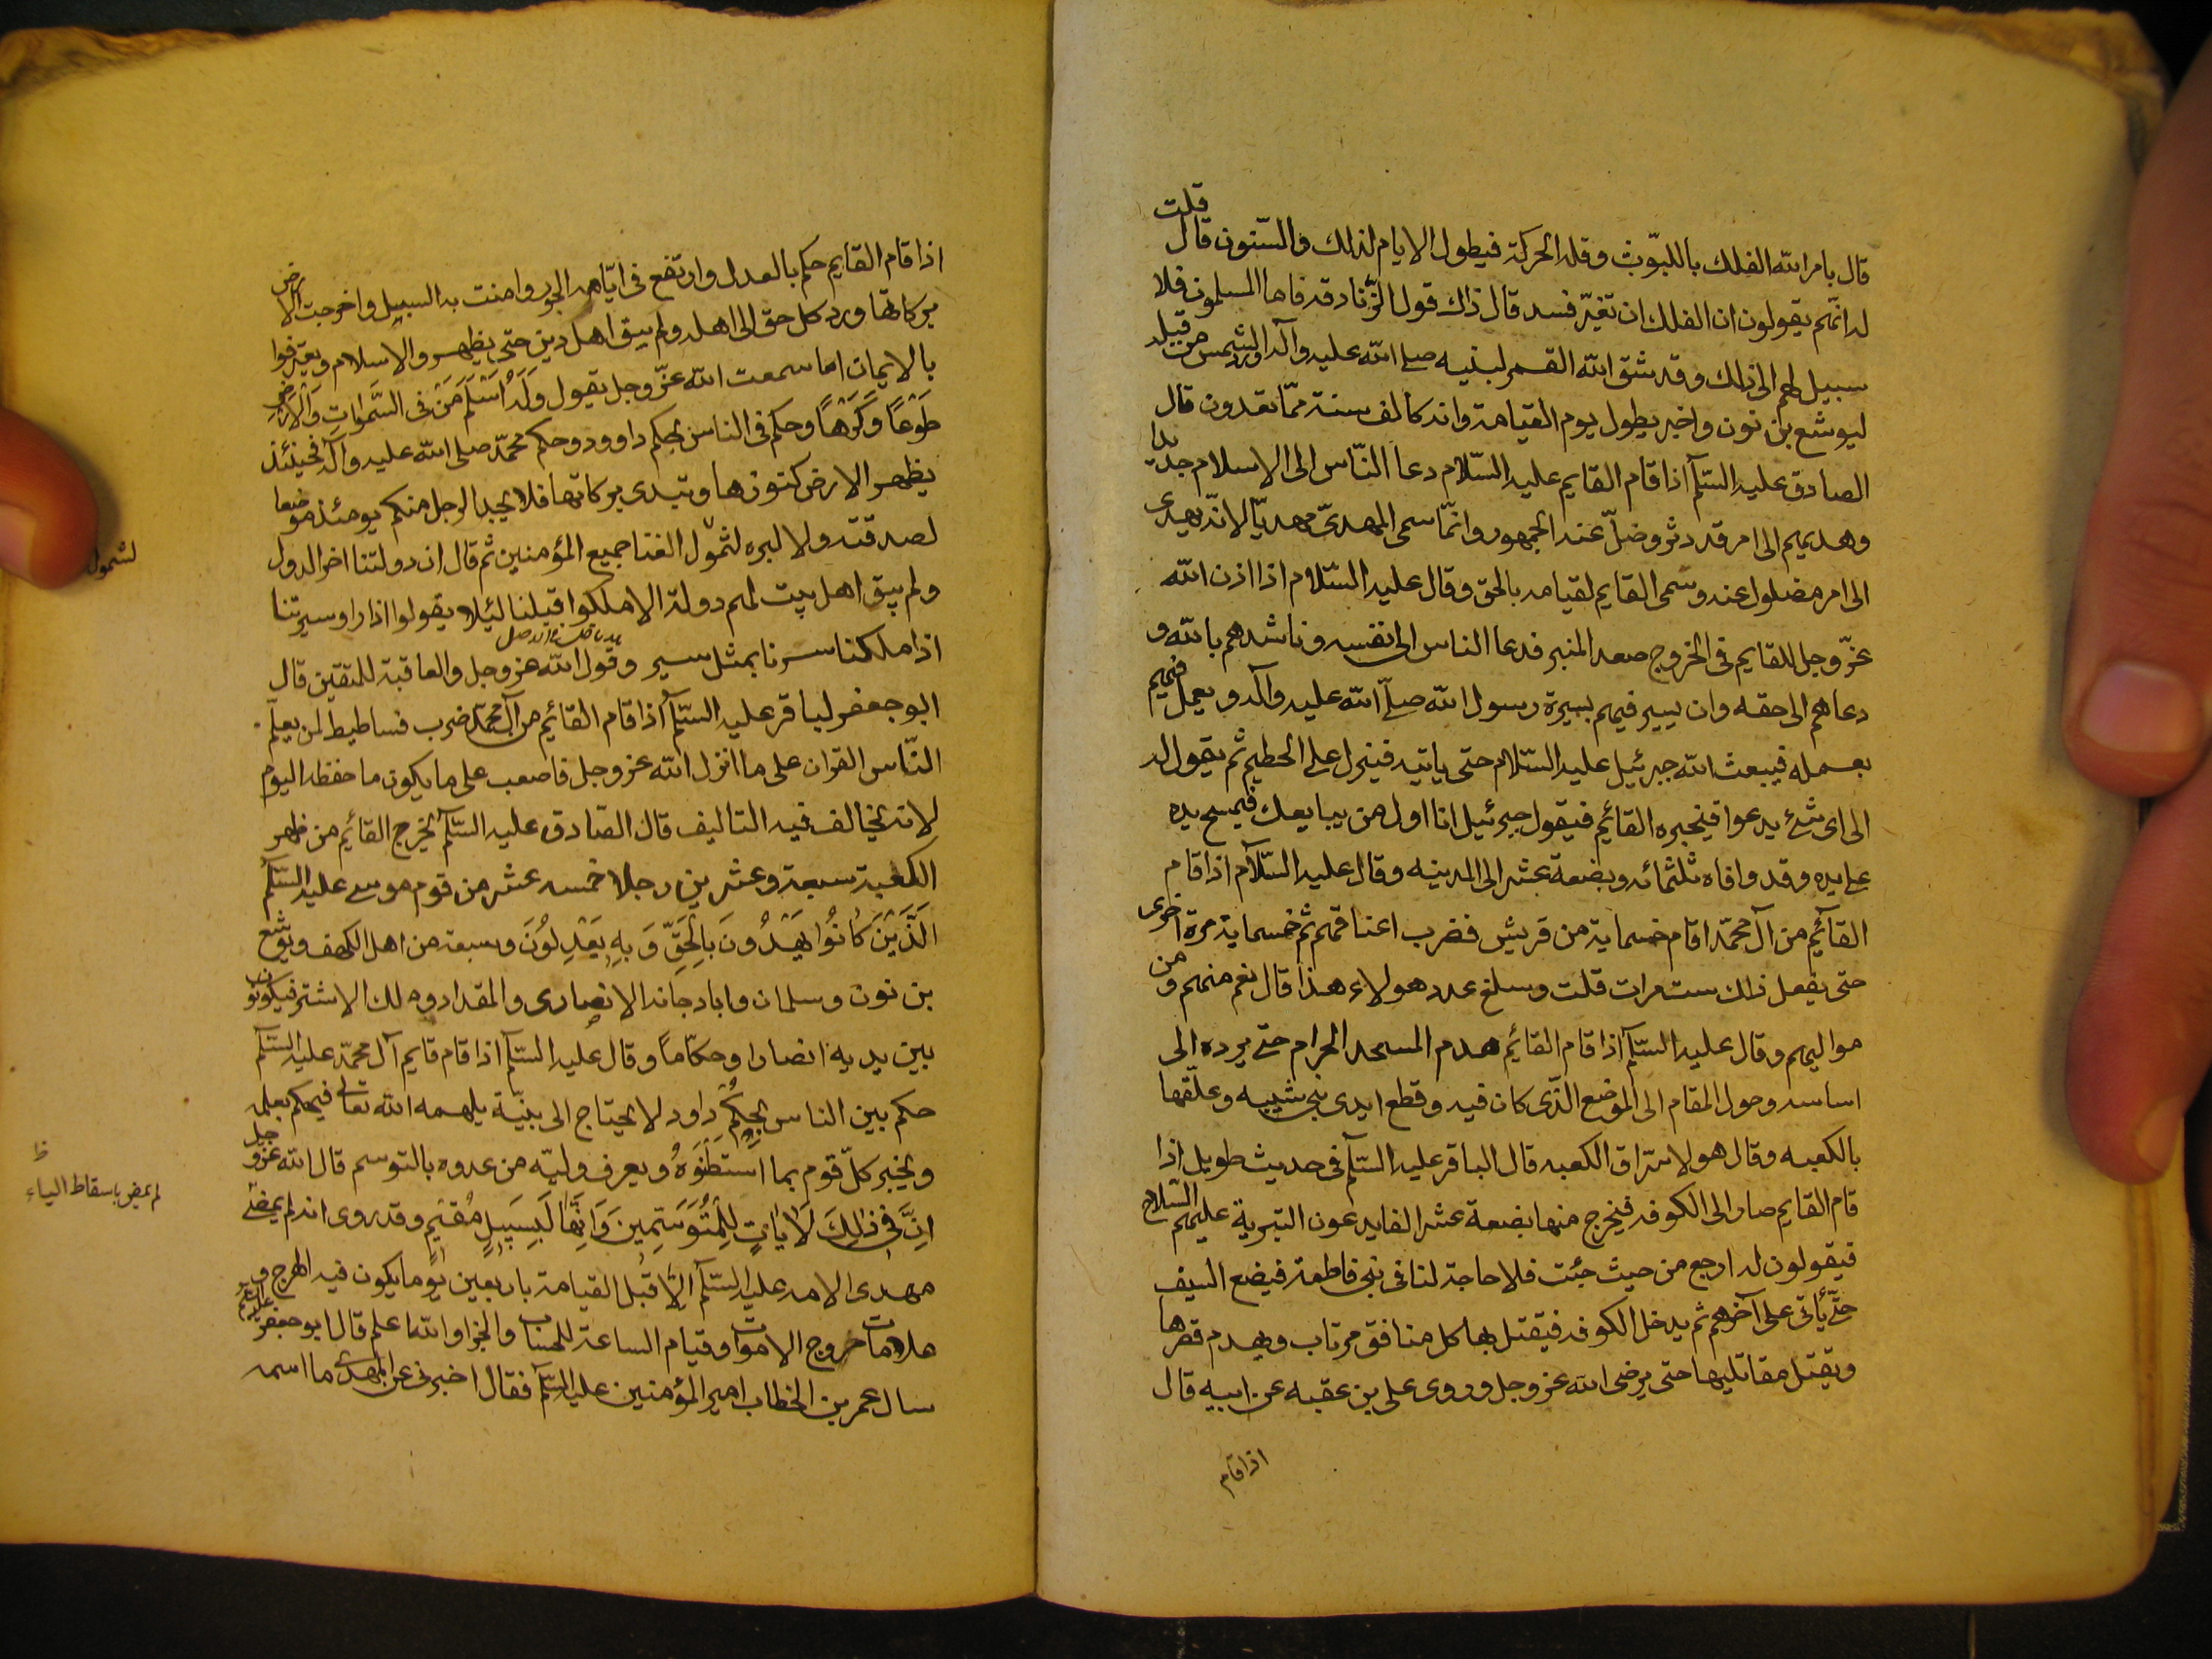 قال يامر الله الفلك باللبوث وقله الحركة فيطول الايام لذلك والسّنون قال قلت
له انّهم يقولون ان الفلك ان تغيّر فسد قال ذاك قول الزّنادقه فاما المسلمون فلا
سبيل لهم الى ذلك وقد شق الله القمر لبنيه صلے الله عليه وآله ورد الشمس من قبله
ليوشع بن نون واخبر بطول يوم القيامة وانه كالف سنة ممّا تعدون قال
الصادق عليه السّلم اذا قام القايم عليه السّلام دعا النّاس الى الاسلام جديدا
وهديهم الى امر قد دثر وضلّ عند الجمهور وانّما سمى المهدىّ مهديّا لانّه يهدى
الى امر مضلول عنه وسمى القايم لقيامه بالحق وقال عليه السّلام اذا اذن الله
عزّ وجل للقايم فى الخروج صعد المنبر فدعا الناس الى نفسه وناشدهم بالله و
دعاهم الى حقه وان يسير فيهم بسيرة رسول الله صلّے الله عليه وآله ويعمل فيهم
بعمله فيبعث الله جبرئيل عليه السّلام حتى ياتيه فينزل على الحطيم ثم يقول له
الى اى شئ يدعوا فيخبره القائم فيقول جبرئيل انا اول من يبايعك فيمسح يده
على يده وقد وافاه ثلثمائه وبضعة عشر الى المدينه وقال عليه السّلام اذا قام
القآئم من آل محمّد اقام خسماية من قريش فضرب اعناقهم ثم خسماية مرة اخرى
حتى يفعل ذلك ست مرات قلت وسلغ عدد هولاء هذا قال نعم منهم و من
مواليهم وقال عليه السّلم اذا قام القائيم هدم المسجد الحرام حتے يرده الى
اساسه وحول المقام الى الموضع الّذى كان فيه وقطع ايدى بنى شيبه وعلّقها
بالكعبه وقال هولا سرّاق الكعبه قال الباقر عليه السّلم فى حديث طويل اذا
قام القايم صار الى الكوفه فيخرج منها بضعة عشر الفا يدعون التبرية عليهم السّلاح
فيقولون له ارجع من حيث جئت فلا حاجة لنا فى بنى فاطمة فيضع السيف
حتّے ياتى على آخرهم ثم يدخل الكوفه فيقتل بها كل منافق مرتاب ويهدم قصرها
ويقتل مقاتليها حتى يرضى الله عز وجل وروى على بن عقبه عن ابيه قال
اذا قام
اذا قام القايم حكم بالعدل وارتفع فى ايّامه الجور وامنت به السبيل واخرجت الارض
بركاتها ورد كل حق الى اهله ولم يبق اهل دين حتى يظهروا الاسلام ويعترفوا
بالايمان اما سمعت الله عزّ وجل يقول وَلَهُ اَسْلَمَ مَنْ فى السَّموٰات وَالْاَرْض
طَوْعًا وَّكَرْهًا وحكم فى الناس بحكم داوود وحكم محمّد صلى الله عليه وآله فحينئذ
يظهر الارض كنوزها وتبدى بركاتها فلا يجد الرجل منكم يومئذ موضعا
لصدقته ولا لبره لثمول الغنا جميع المؤمنين ثم قال ان دولتنا اخر الدول
لشمول
ولم يبق اهل بيت لهم دولة الا ملكوا قبلنا ليئلا يقولوا اذا راوا سيرتنا
اذا ملكنا سرنا بمثل سير وقول الله عز وجل والعاقبة للمتقين قال
ابو جعفر لباقر عليه السّلم اذا قام القائيم من آل محمّد ضرب فساطيط لمن يعلّم
النّاس القران على ما انزل الله عز وجل فاصعب على ما يكون ما حفظه اليوم
لانه يخالف فيه التاليف قال الصّادق عليه السّلم يخرج القائيم من ظهر
الكعبة سبعة وعشرين رجلا خمسه عشر من قوم موسے عليه السّلم
الَّذَيْنَ كٰانُوا يَهْدُونَ بِالْحَقِّ وَ بِهٖ يَعْدِلُونَ وسبعة من اهل الكهف ويوشع
بن نون وسلمان وابا دجانه الانصارى والمقداد ومٰلك الاشتر فيكونون
بين يديه انصارا وحكّاما وقال عليه السّلم اذا قام قايم آل محمّد عليه السّلم
حكم بين الناس بِحُكْمِ داود لا يحتاج الى بيّنة يلهمه الله تعالى فيحكم بعلمه
ويخبر كلّ قوم بما استبطنوه ويعرف وليّه من عدوه بالتوسم قال الله عزّ وجل
اِنَّ فى ذٰلِكَ لَاٰيٰاتٍ لِلْمُتَوَسِّمينَ وَاِنَّهٰا لَبِسَبيلٍ مُقيمٍ وقد روى انه لم يمضے
ظ
لم يمض باسقاط الياء
مهدى الامه عليه السّلم الّا قبل القيامة باربعين يوما يكون فيه الهرج و
علامات خروج الاموات وقيام الساعة للحساب والجزا والله اعلم قال ابو جعفر عليه السّلم
سال عمر بن الخطاب امير المؤمنين عليه السّلم فقال اخبرنى عن المهدى ما اسمه